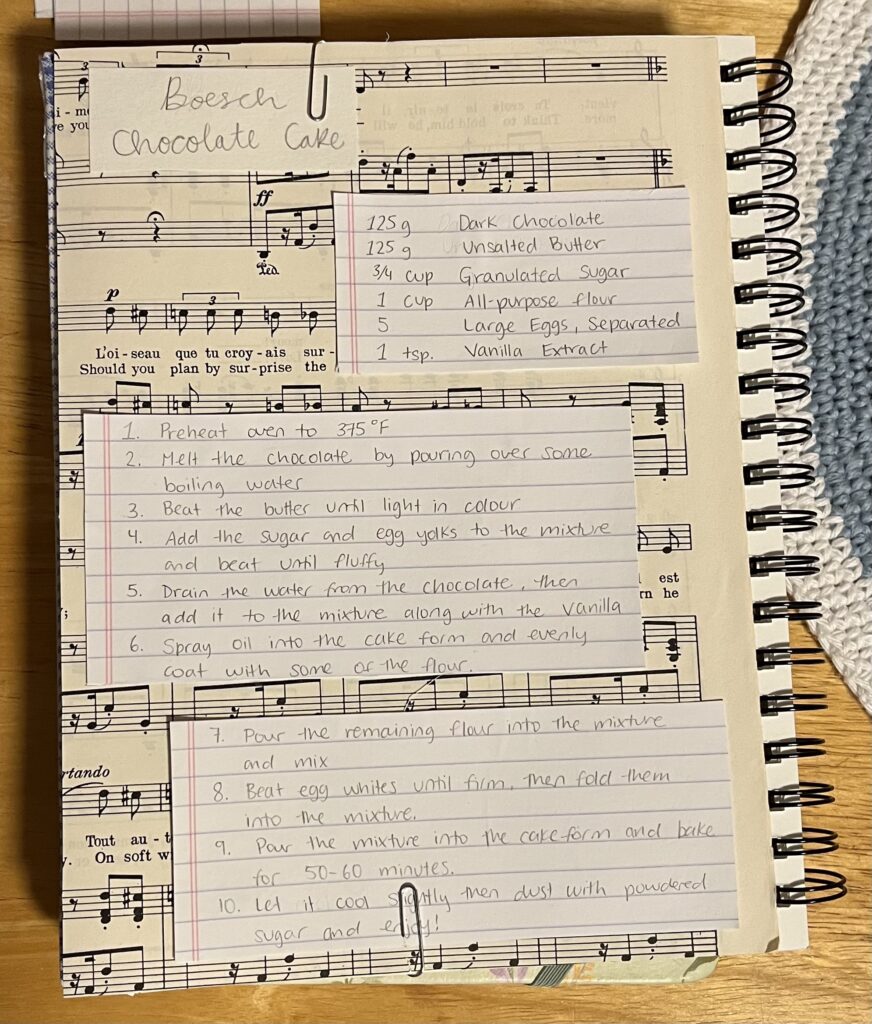 Boesch
Chocolate Cake
125g Dark Chocolate
125g Unsalted Butter
3/4 cup Granulated Sugar
1 cup All-purpose flour
5 Large Eggs, Separated
1 tsp. Vanilla Extract
ff
p
L'oi-seau que tu croy-ais sur-
Should you plan by sur-prise the
1. Preheat oven to 375°F
2. Melt the chocolate by pouring over some
boiling water
3. Beat the butter until light in colour
4. Add the sugar and egg yolks to the mixture
and beat until fluffy
5. Drain the water from the chocolate, then
add it to the mixture along with the vanilla
6. Spray oil into the cake form and evenly
coat with some of the flour.
est
he
7. Pour the remaining flour into the mixture
and mix
8. Beat egg whites until firm, then fold them
into the mixture.
9. Pour the mixture into the cake form and bake
for 50-60 minutes.
10. Let it cool slightly then dust with powdered
sugar and enjoy!
rtando
Tout au-t
On soft w